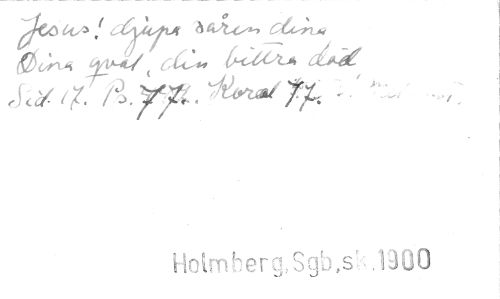 Jesus! djupa såren dina
Dina qval, din bittra död
Sid. 17. Ps. 77. Koral 77.
Holmberg, Sgb, sk. 1900